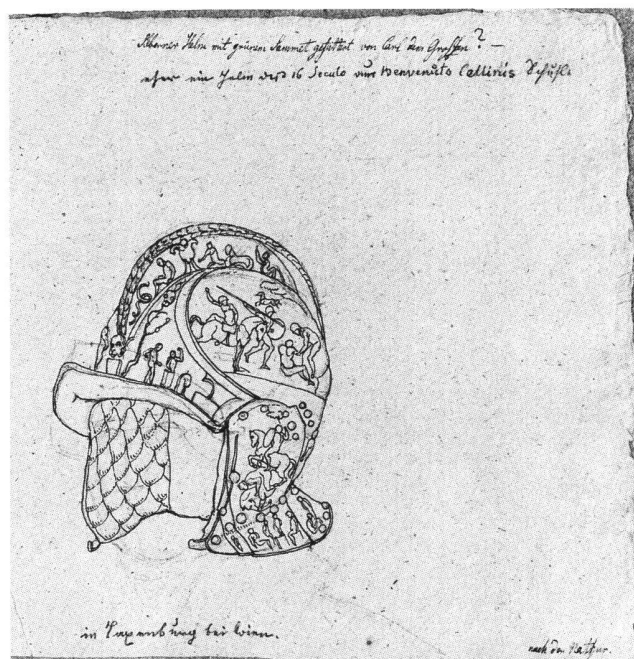 Silberner Helm mit grünem Sammet gefüttert von Carl dem Großen? —
eher ein Helm des 16 Seculo aus Benvenuto Cellinis Schule
in Laxenburg bei Wien.
nach der Natur.